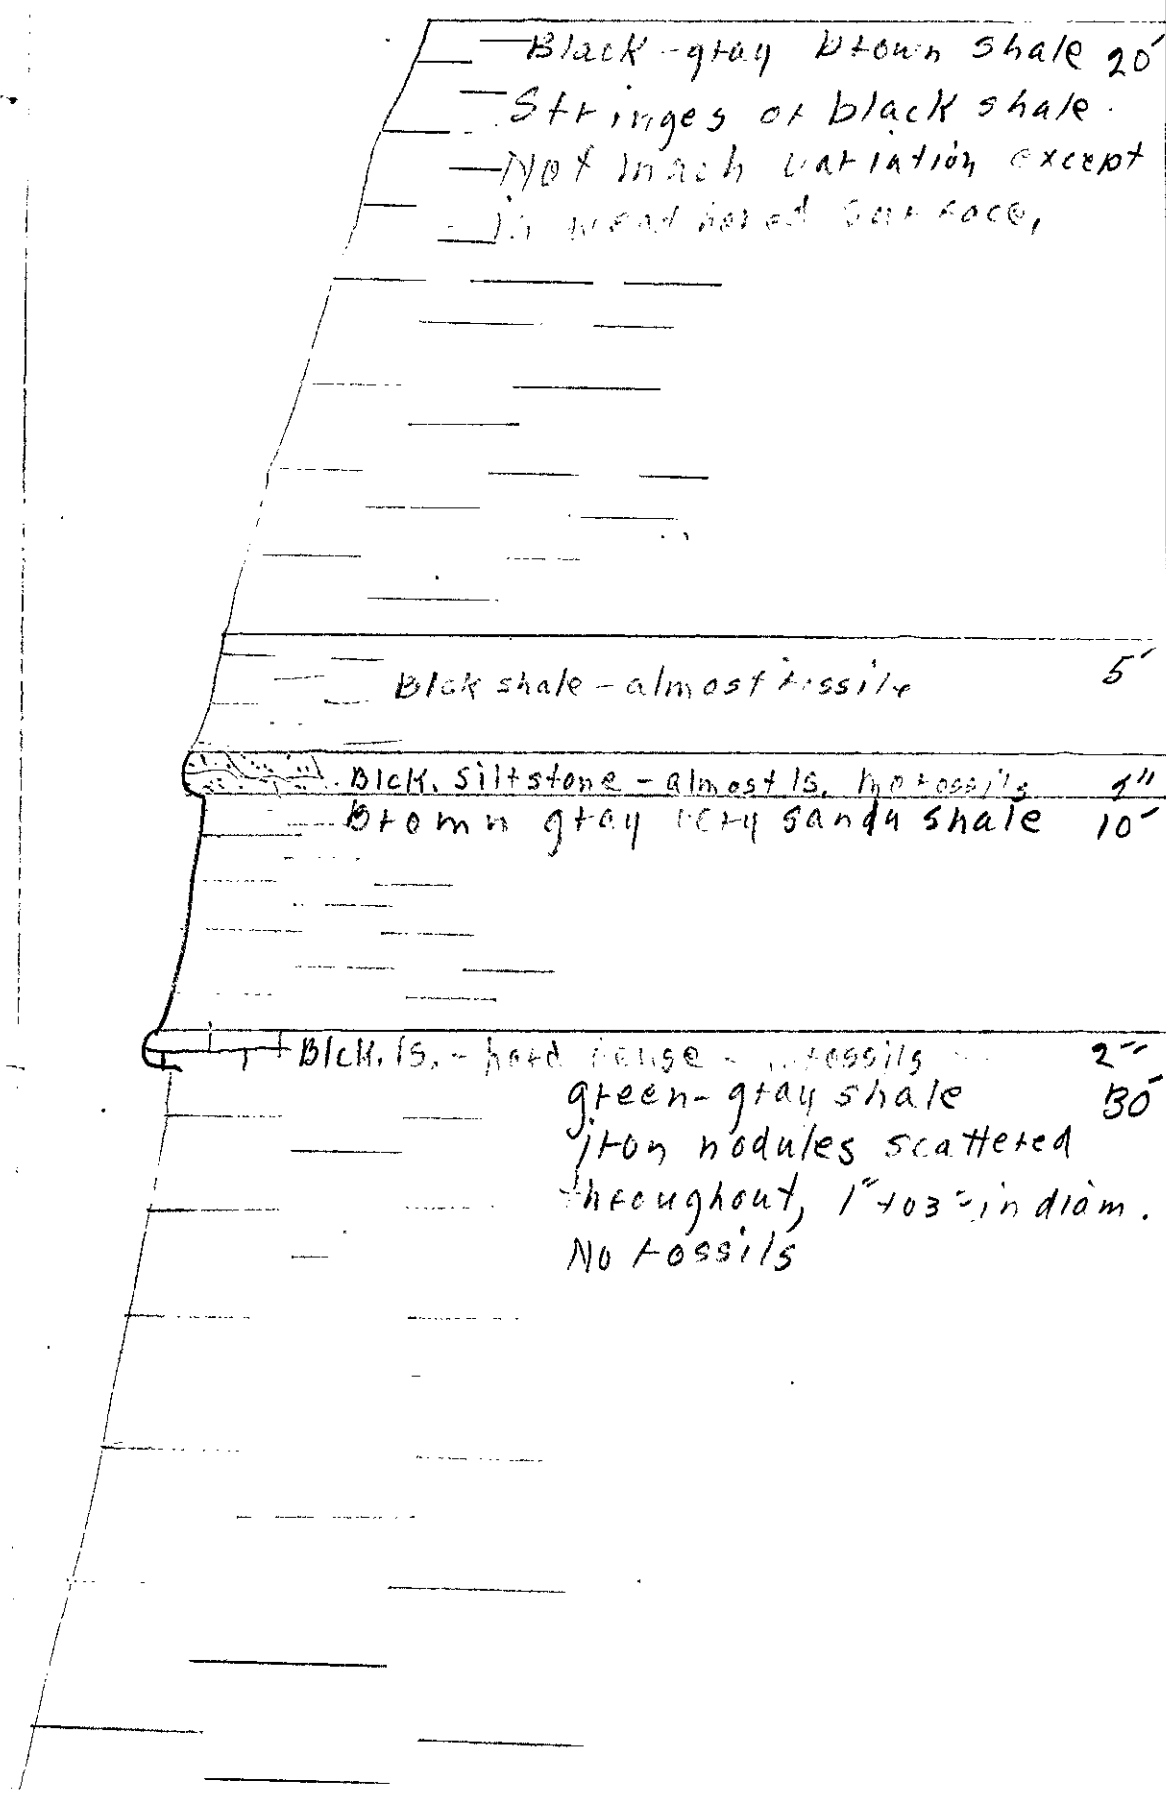 Black-gray brown shale 20'
Stringes of black shale.
Not much variation except
in weathered surface,
Blck shale - almost fissile 5'
Blck. siltstone - almost ls. no fossils
Brown gray very sandy shale 10'
Blck. ls. - hard dense - fossils 2"
green-gray shale 30'
iron nodules scattered
throughout, 1" to 3" in diam.
No fossils